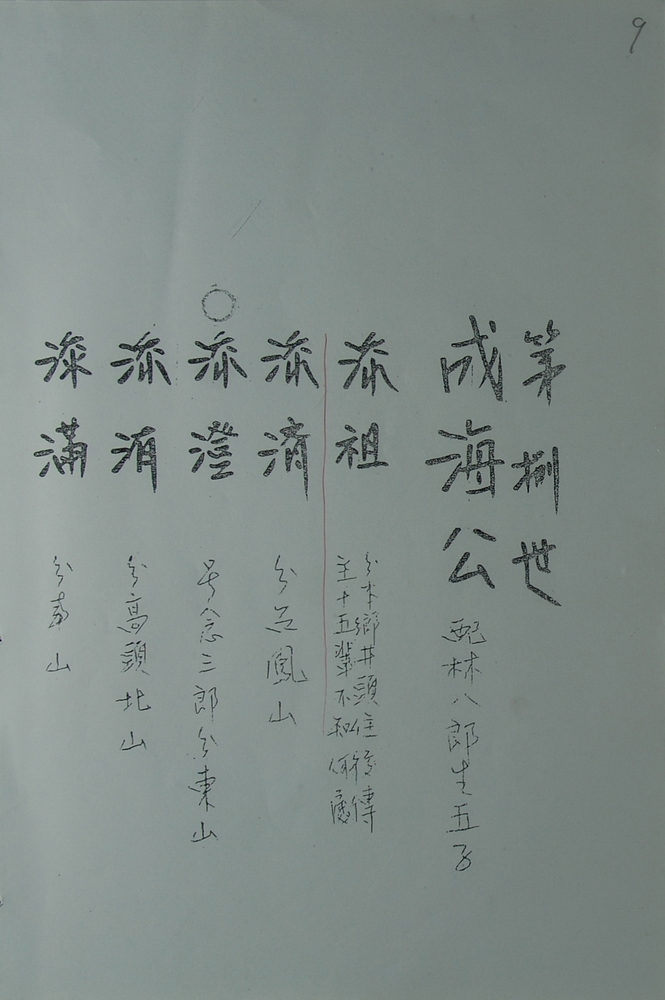 9
第捌世
成海公 配林八郎生五子
添祖 分本鄉井頭住後傳
至十五輩不知何處
添清 分呂鳳山
添澄 号念三郎分東山
添洧 分高頭北山
添滿 分南山